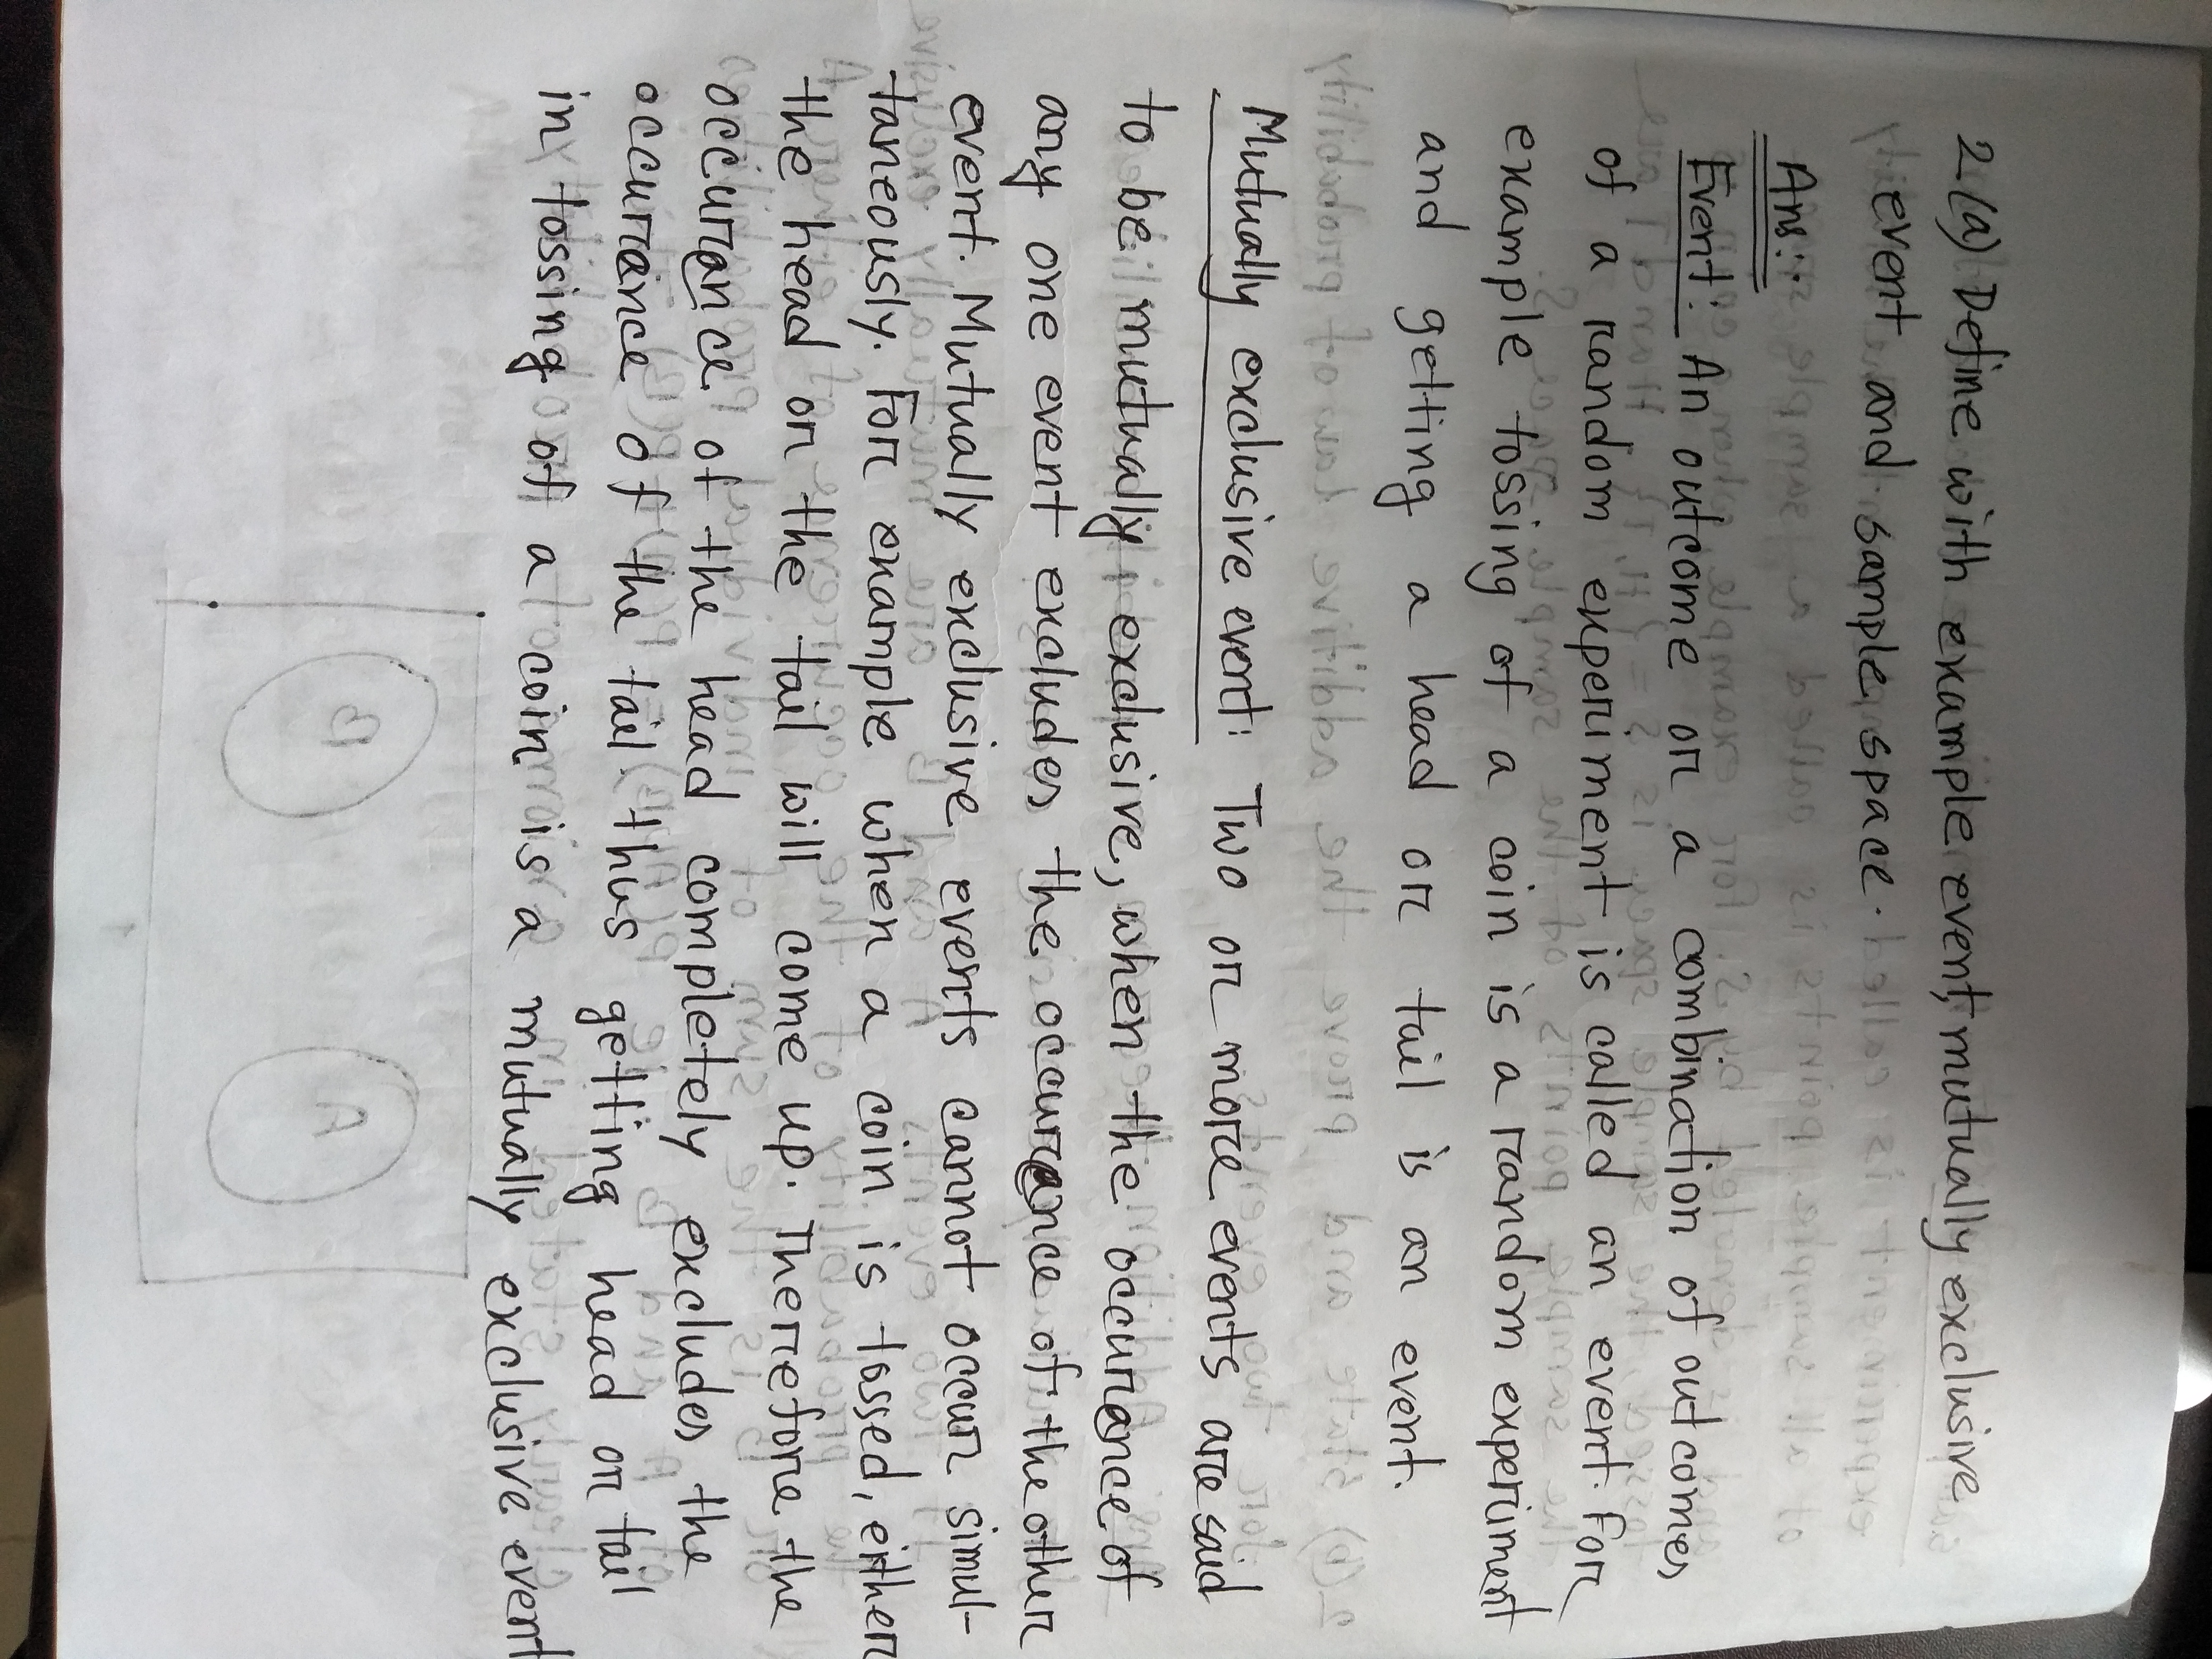 2(a) Define with example event, mutually exclusive
event and sample space.
Ans:
Event: An outcome or a combination of outcomes
of a random experiment is called an event. For
example tossing of a coin is a random experiment
and getting a head or tail is an event.
Mutually exclusive event: Two or more events are said
to be mutually exclusive, when the occurance of
any one event excludes the occurance of the other
event. Mutually exclusive events cannot occur simul-
taneously. For example when a coin is tossed, either
the head or the tail will come up. Therefore the
occurance of the head completely excludes the
occurance of the tail. thus getting head or tail
in tossing of a coin is a mutually exclusive event